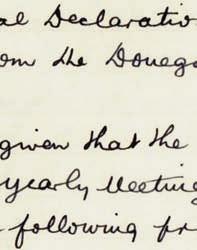 al Declaratio
om the Donega
given that the
yearly Meeting
following pr